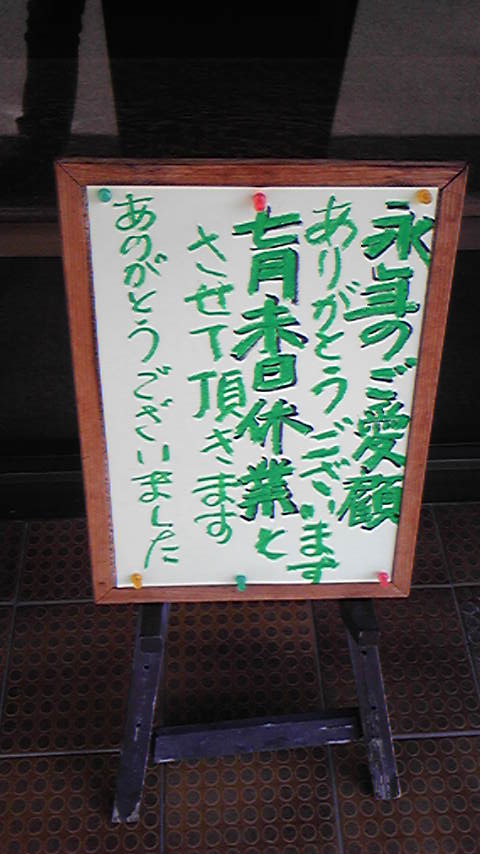 永年のご愛顧
ありがとうございます
七月末日休業と
させて頂きます
ありがとうございました